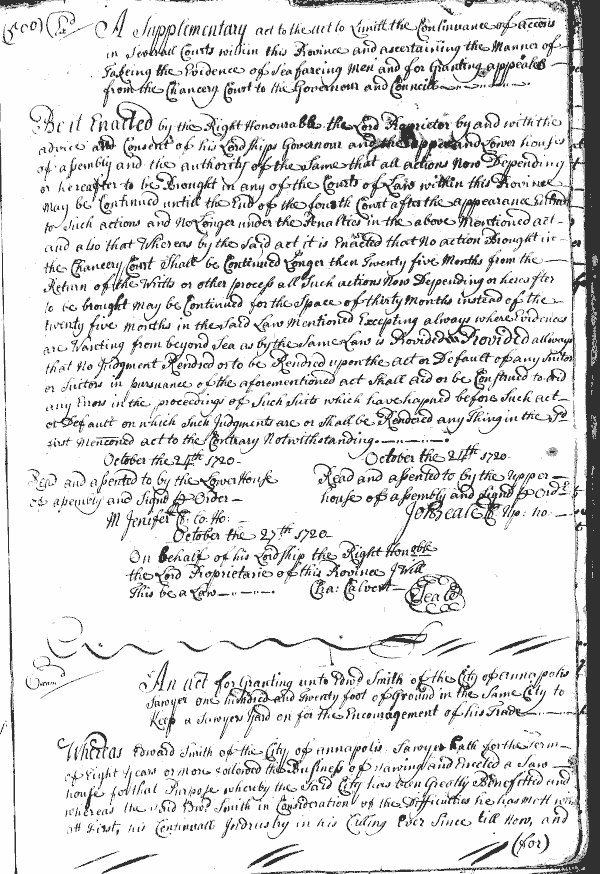 A Supplementary act to the act to Limitt the Continuance of accons
in Severall Courts within this Province and ascertaining the Manner of
Takeing the Evidence of Seafareing Men and for Granting appeales
from the Chancery Court to the Governour and Councill
Be it Enacted by the Right Honourable the Lord Proprietor by and with the
advice and Consent of his Lordships Governour and the upper and Lower houses
of assembly and the authority of the Same that all actions Now Depending
or hereafter to be Brought in any of the Courts of Law within this Province
May be Continued untill the End of the fourth Court after the appearance
to Such actions and No Longer under the Penalties in the above Mentioned act
and also that Whereas by the Said act it is Enacted that No action Brought in
the Chancery Court Shall be Continued Longer then Twenty five Months from the
Return of the Writts or other process all Such actions Now Depending or hereafter
to be brought May be Continued for the Space of thirty Months instead of the
twenty five Months in the Said Law Mentioned Excepting always where Evidences
are Wanting from beyond Sea as by the Same Law is Provided Provided allways
that No Judgment Rendred or to be Rendred upon the act or Default of any Suitor
or Suitors in pursuance of the aforementioned act Shall aid or be Construed to aid
any Errors in the proceedings of Such Suits which have hapned before Such act
or Default on which Such Judgments are or Shall be Rendered any Thing in the Sd
first Mencōned act to the Contrary Notwithstanding
October the 24th 1720
Read and assented to by the Lower House
of assembly and Signd P Order
M Jenifer Cl. Lo. Ho:
October the 24th 1720
Read and assented to by the Upper
house of assembly and Signd P Ordr
Jo Beale Cl Up: ho
October the 27th 1720
On behalf of his Lordship the Right Honoble
the Lord Proprietarie of this Province I Will
This be a Law
Cha: Calvert
Seale
An act for Granting unto Edwd Smith of the City of annapolis
Sawyer one hundred and twenty foot of Ground in the Same City to
Keep a Sawyers Yard on for the Encouragement of his Trade
Whereas Edward Smith of the City of annapolis Sawyer hath for the Term
of Eight Years or more followed the Business of Sawing and Erected a Saw
house for that Purpose whereby the Said City has been Greatly Benefitted and
whereas the said Edwd Smith in Consideration of the Difficulties he has Mett with
att First, his Continuall Industry in his Calling Ever Since till Now, and
(for)